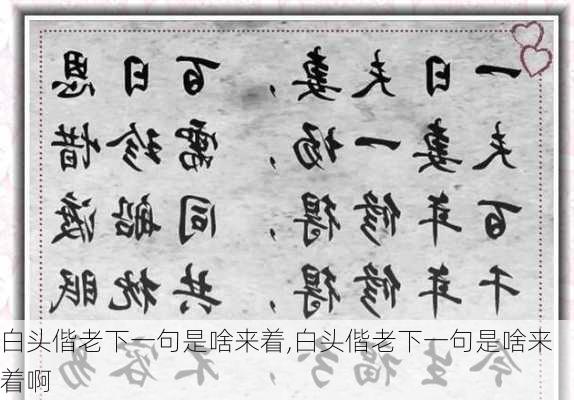 一日夫妻，百日恩
夫妻一场，需珍惜
百年修得，同船渡
千年修得，共枕眠
今生福分，不容易
白头偕老下一句是啥来着,白头偕老下一句是啥来
着啊